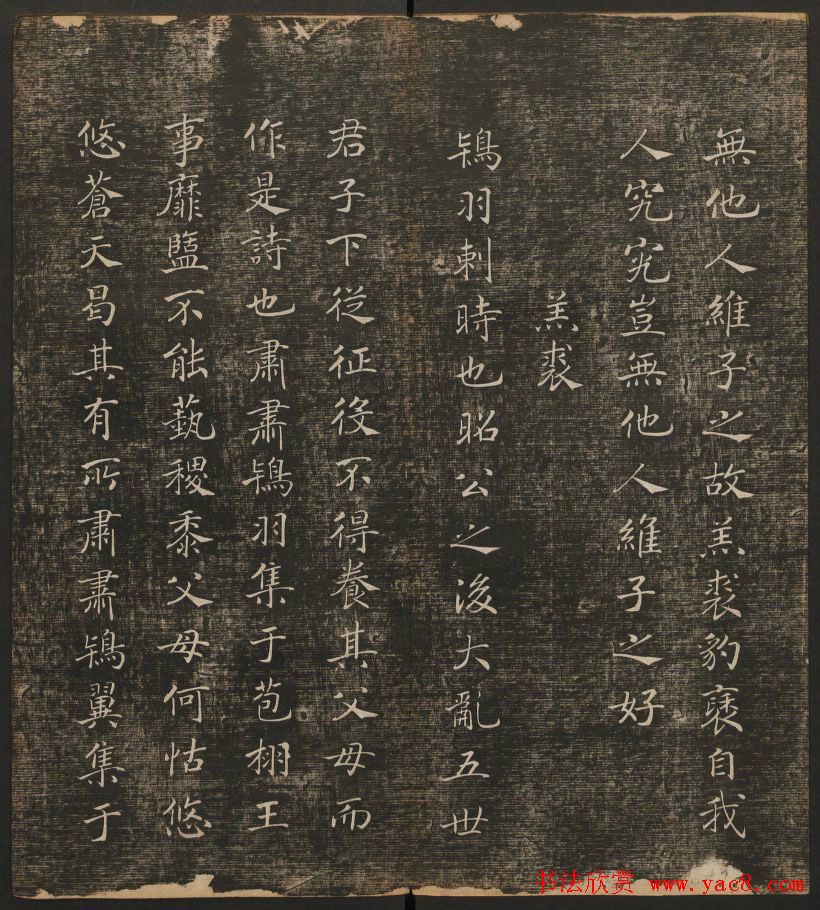 無他人維子之故羔裘豹褎自我
人究究豈無他人維子之好
羔裘
鴇羽刺時也昭公之後大亂五世
君子下從征役不得養其父母而
作是詩也肅肅鴇羽集于苞栩王
事靡盬不能蓺稷黍父母何怙悠
悠蒼天曷其有所肅肅鴇翼集于
书法欣赏 www.yac8.com